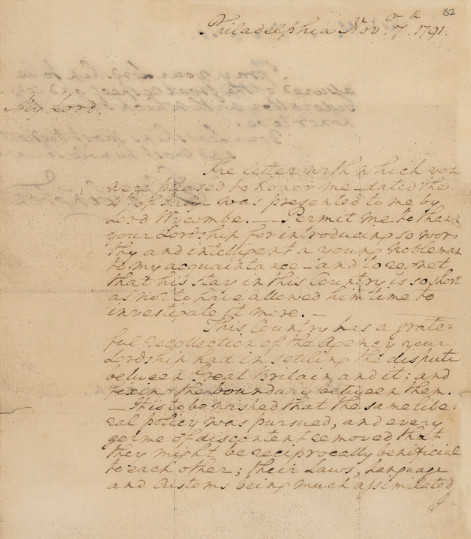 82
Philadelphia Nov. 7th 1791.
My Lord,
The letter with which you
were pleased to honor me—dated the
of was presented to me by
Lord Wycombe.— Permit me to thank
your Lordship for introducing so wor-
thy and intelligent a young Nobleman
to my acquaintance—and to regret,
that his stay in this Country is so short
as not to have allowed him time to
investigate it more.—
This Country has a grate-
ful recollection of the Agency your
Lordship had in settling the dispute
between Great Britain and it; and
fixing the boundary between them.
—It is to be wished that the same libe-
ral policy was pursued, and every
germe of discontent removed that
they might be reciprocally beneficial
to each other; their Laws, Language
and Customs being much assimilated